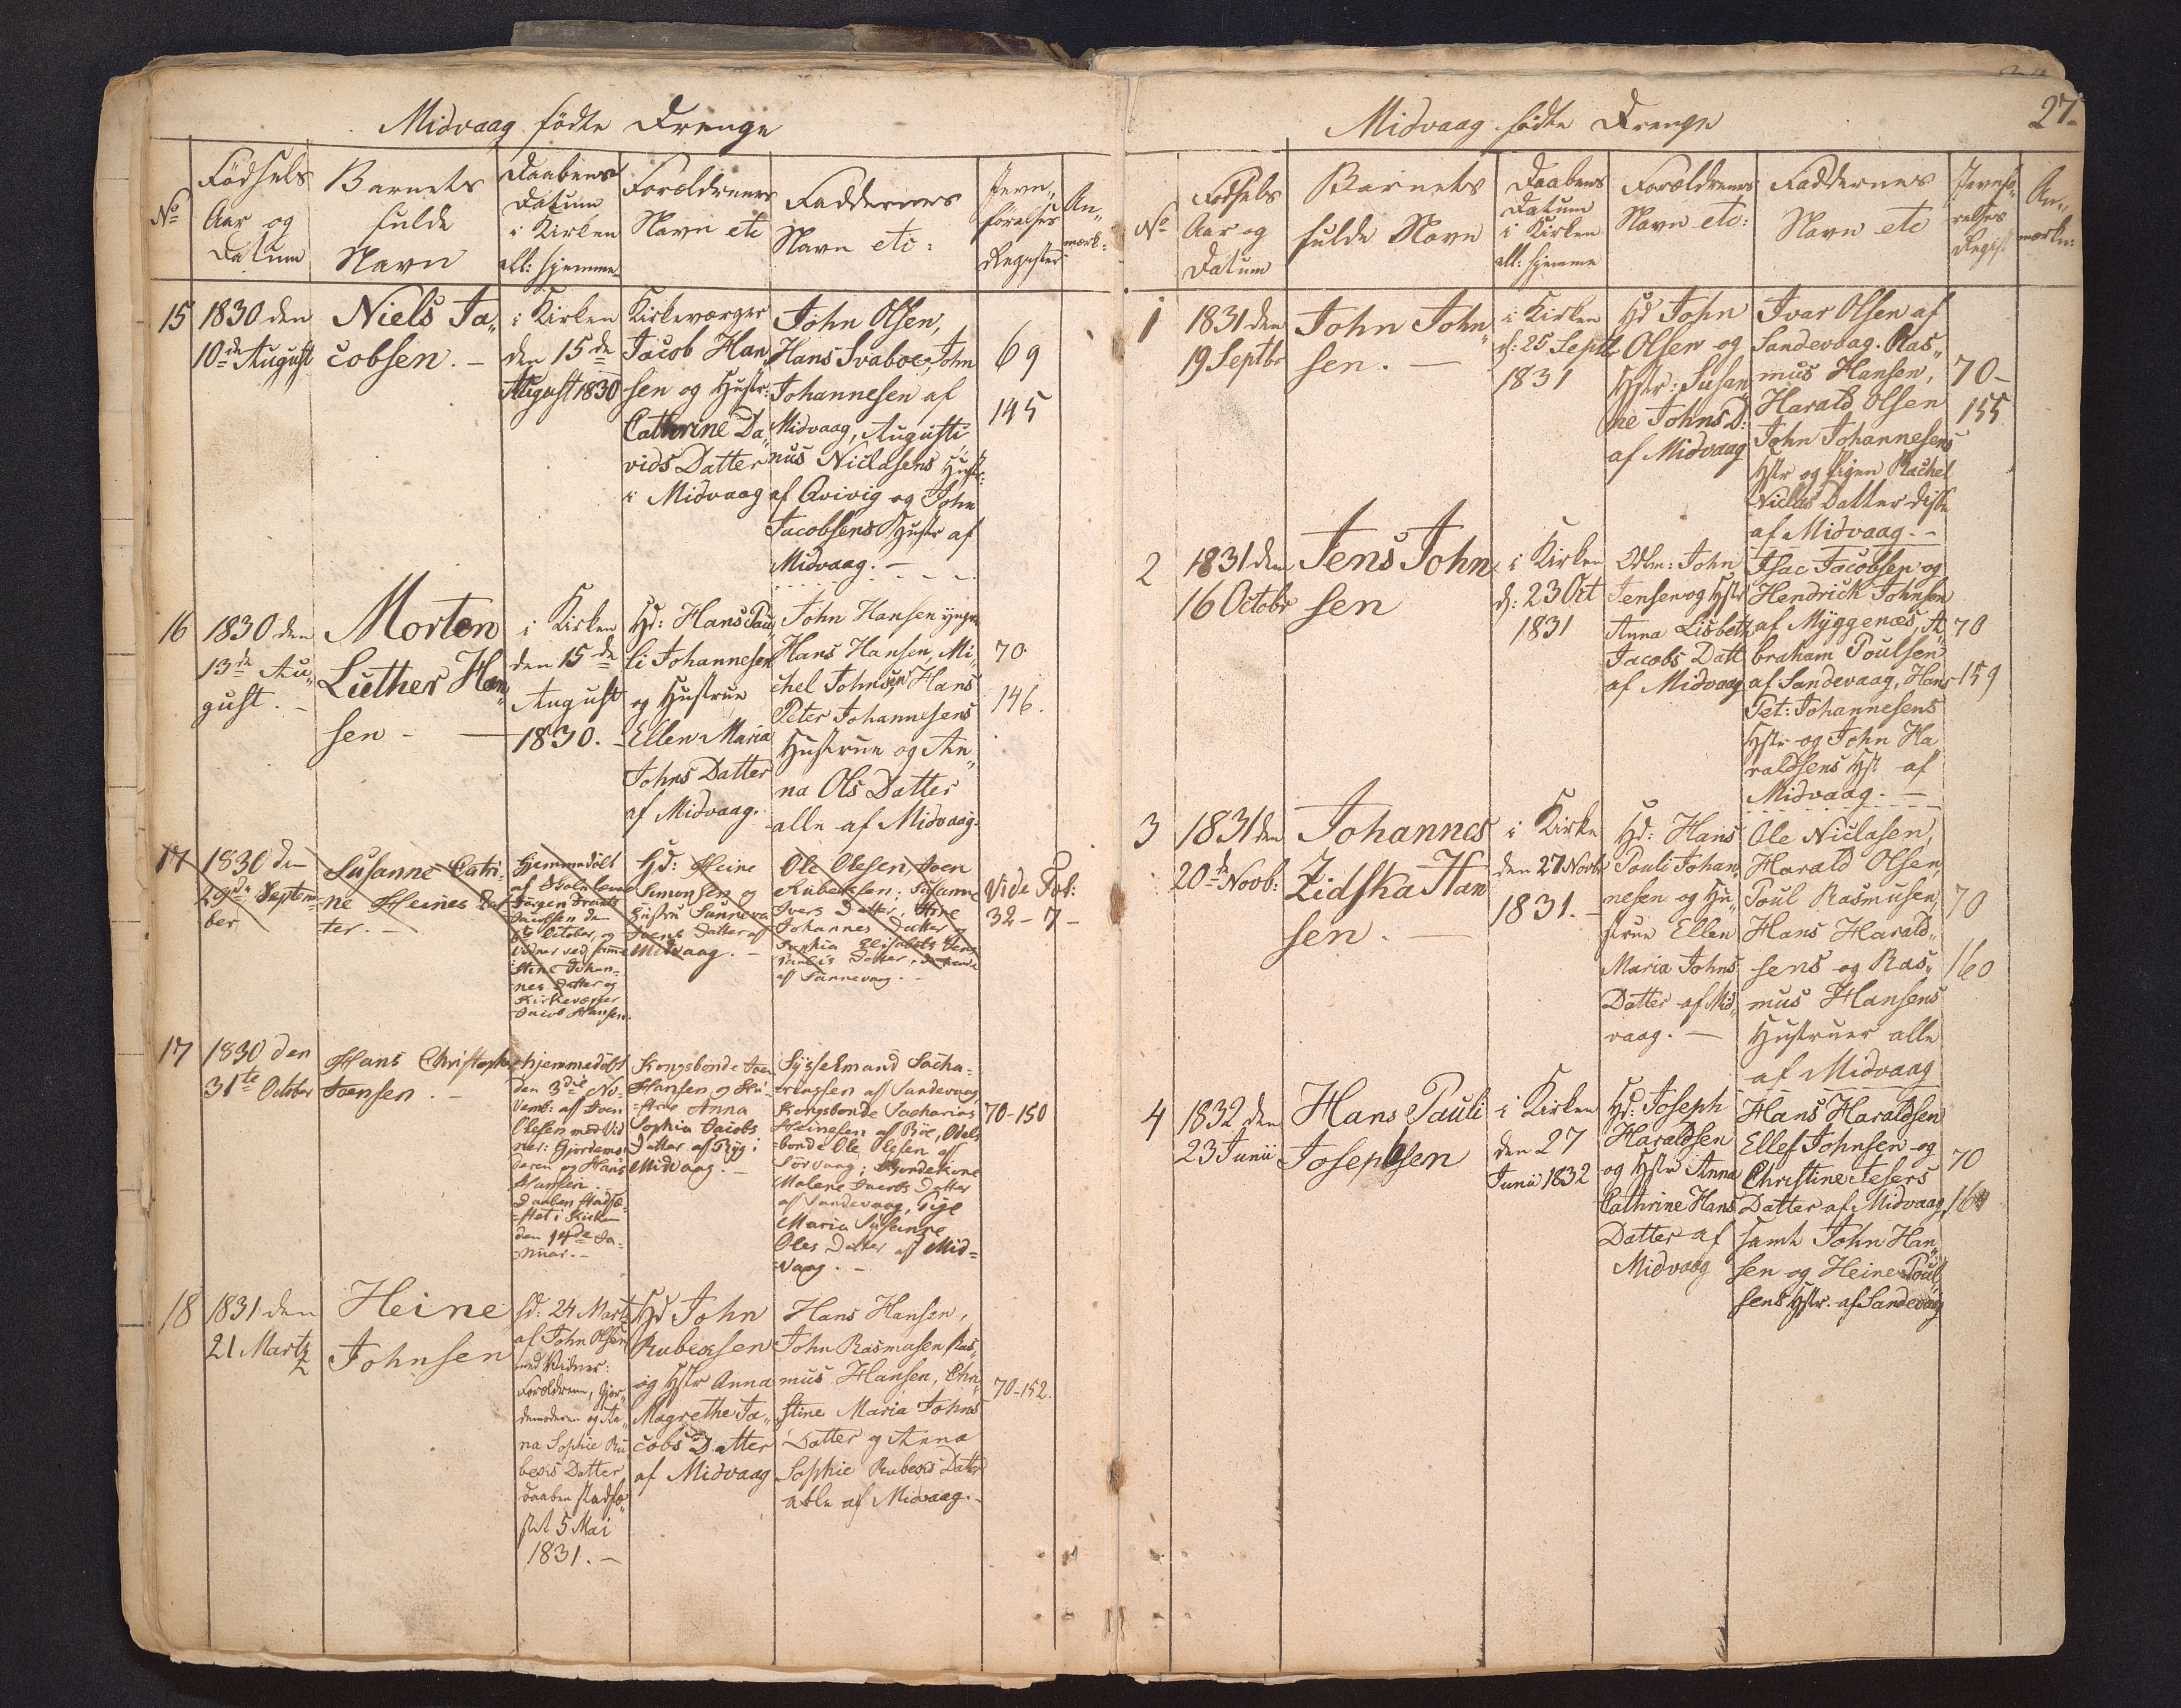 Midvaag fødte Drenge
No
Fødsels
Aar og
Datum
Barnets
fulde
Navn
Daabens
Datum
i Kirken
ell: hjemme
Forældrenes
Navn etc
Faddernes
Navn etc:
Jevn„
førelses
Register
An„
mærk:
15
1830 den
10de August
Niels Ja„
cobsen. –
i Kirken
den 15de
August 1830
Kirkeværger
Jacob Han
sen og Hustr:
Cathrine Da„
vids Datter
i Midvaag
John Olsen,
Hans Svaboe, John
Johannesen af
Midvaag, Augusti
nus Niclasens Hustr:
af Qvivig og John
Jacobsens Hustr af
Midvaag. –
69
145
16
1830 den
13de Au„
gust. –
Morten
Luther Han„
sen –
i Kirken
den 15de
August
1830. –
Hd: Hans Pau„
li Johannesen
og Hustrue
Ellen Maria
Johns Datter
af Midvaag.
John Hansen yngre
Hans Hansen, Mi„
chel Johnsen, Hans
Peter Johannesens
Hustrue og An„
na Ols Datter
alle af Midvaag.
70
146.
17
1830 d–
29de Septem–
ber
Susanne Catri–
ne Heines Dat
ter. –
Hjemmedøbt
af Skolelærer
Jørgen Frants
Jacobsen den
October, og
Vidner ved samme
Stine Johan–
nes Datter og
Kirkeværger
Jacob Hansen.
Hd: Heine
Simonsen og
Hustru Sunneva
Joens Datter af
Midvaag. –
Ole Olesen, Joen
Rubeksen; Susanne
Ivers Datter, Stine
Johannes Datter og
Sophia
Datter,
af Sannevaag. –
Vide Fol:
32 – 7 –
17
1830 den
31te October
Hans Christopher
Joensen. –
hjemmedøbt
den 3die No–
vemb: af Joen
Olesen med Vid
ner: Gjordemo–
deren og Hans
Hansen. –
Daaben stadfæ–
stet i Kirken
den 14de Ja–
nuar. –
Kongsbonde Joen
Hansen og Hu–
strue Anna
Sophia Jacobs
Datter af Ryg i
Midvaag. –
Sysselmand Sacha–
riassen af Sandevaag,
Kongsbonde Sacharias
Heinesen af Bøe, Odels
bonde Ole Olesen af
Sørvaag; Bondekone
Malene Jacobs Datter
af Sandevaag, Pige
Maria Susanne
Oles Datter af Mid–
vaag. –
70–150
18
1831 den
21 Martz
Heine
Johnsen
hd. 24 Martz
af John Olsen
med Vidner:
Forældrene, Gjor„
demoderen og An„
na Sophie Ru
beks Datter
Daaben stadfæ„
stet 5 Mai
1831. –
Hd John
Rubeksen
og Hstr Anna
Magrethe Ja„
cobs Datter
af Midvaag
Hans Hansen,
John Rasmusen Ras„
mus Hansen, Chri„
stine Maria Johns
Datter og Anna
Sophie Rubeks Datter
alle af Midvaag. –
70–152.
27.
Midvaag fødte Drenge
No
Fødsels
Aar og
Datum
Barnets
fulde Navn
Daabens
Datum
i Kirken
ell: hjemme
Forældrenes
Navn etc:
Faddernes
Navn etc
Jevnfø„
relses
Regist
An„
mærkn:
1
1831 den
19 Septbr
John John„
sen. –
i Kirken
d: 25 Septbr
1831
Hd John
Olsen og
Hstr: Susan„
ne Johns D:
af Midvaag
Ivar Olsen af
Sandevaag. Ras„
mus Hansen,
Harald Olsen
John Johannesens
Hstr og Pigen Rachel
Niclas Datter disse
af Midvaag. –
70–
155
2
1831 den
16 Octobr
Jens John„
sen
i Kirken
d: 23 Oct
1831
Odlm: John
Jensen og Hstr
Anna Lisbeth
Jacobs Datt
af Midvaag
Isac Jacobsen og
Hendrick Johnsen
af Myggenæs, A„
braham Poulsen
af Sandevaag, Hans
Pet: Johannesens
Hstr og John Ha
raldsens Hst af
Midvaag. –
70
159
3
1831 den
20de Novb:
Johannes
Zidska Han
sen. –
i Kirke
den 27 Novbr
1831. –
Hd: Hans
Pauli Johan„
nesen og Hu„
strue Ellen
Maria Johns
Datter af Mid„
vaag. –
Ole Niclasen,
Harald Olsen,
Poul Rasmusen,
Hans Harald„
sens og Ras„
mus Hansens
Hustruer alle
af Midvaag
70
160
4
1832 den
23 Junii
Hans Pauli
Josephsen
i Kirken
den 27
Junii 1832
Hd: Joseph
Haraldsen
og Hstr Anna
Cathrine Hans
Datter af
Midvaag
Hans Haraldsen
Ellef Johnsen og
Christine Jesers
Datter af Midvaag,
samt John Han„
sen og Heine Poul„
sens Hstr. af Sandevaag
70